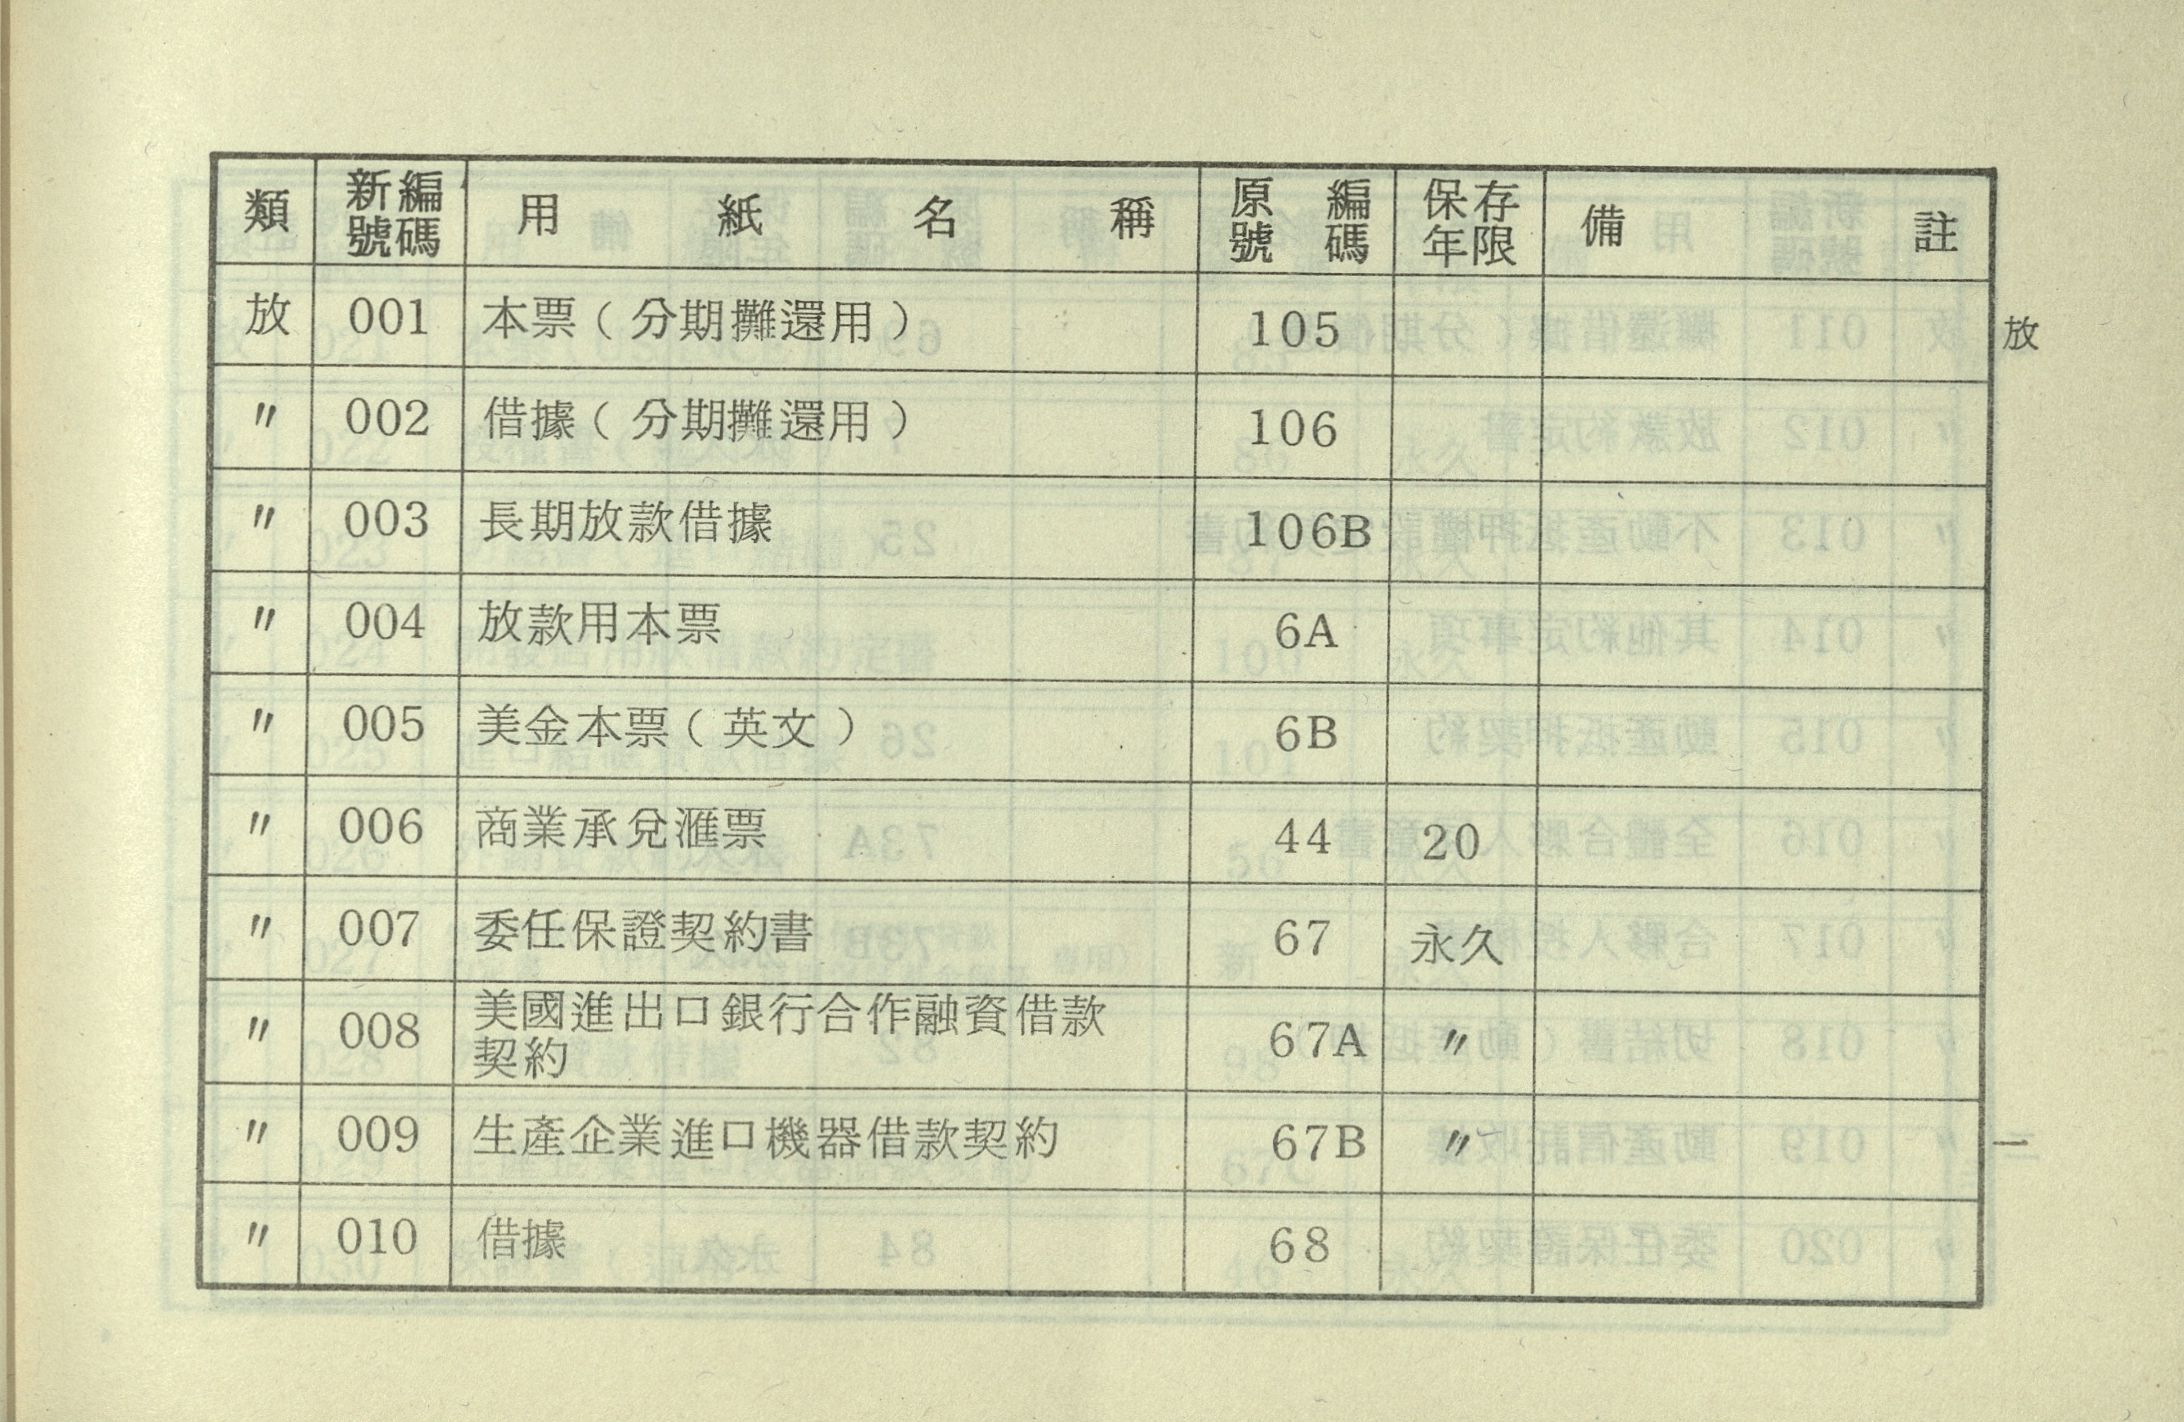 類 新編號碼 用紙名稱 原編號碼 保存年限 備註
放 001 本票（分期攤還用） 105
〃 002 借據（分期攤還用） 106
〃 003 長期放款借據 106B
〃 004 放款用本票 6A
〃 005 美金本票（英文） 6B
〃 006 商業承兌滙票 44 20
〃 007 委任保證契約書 67 永久
〃 008 美國進出口銀行合作融資借款
契約 67A 〃
〃 009 生產企業進口機器借款契約 67B 〃
〃 010 借據 68
放
一